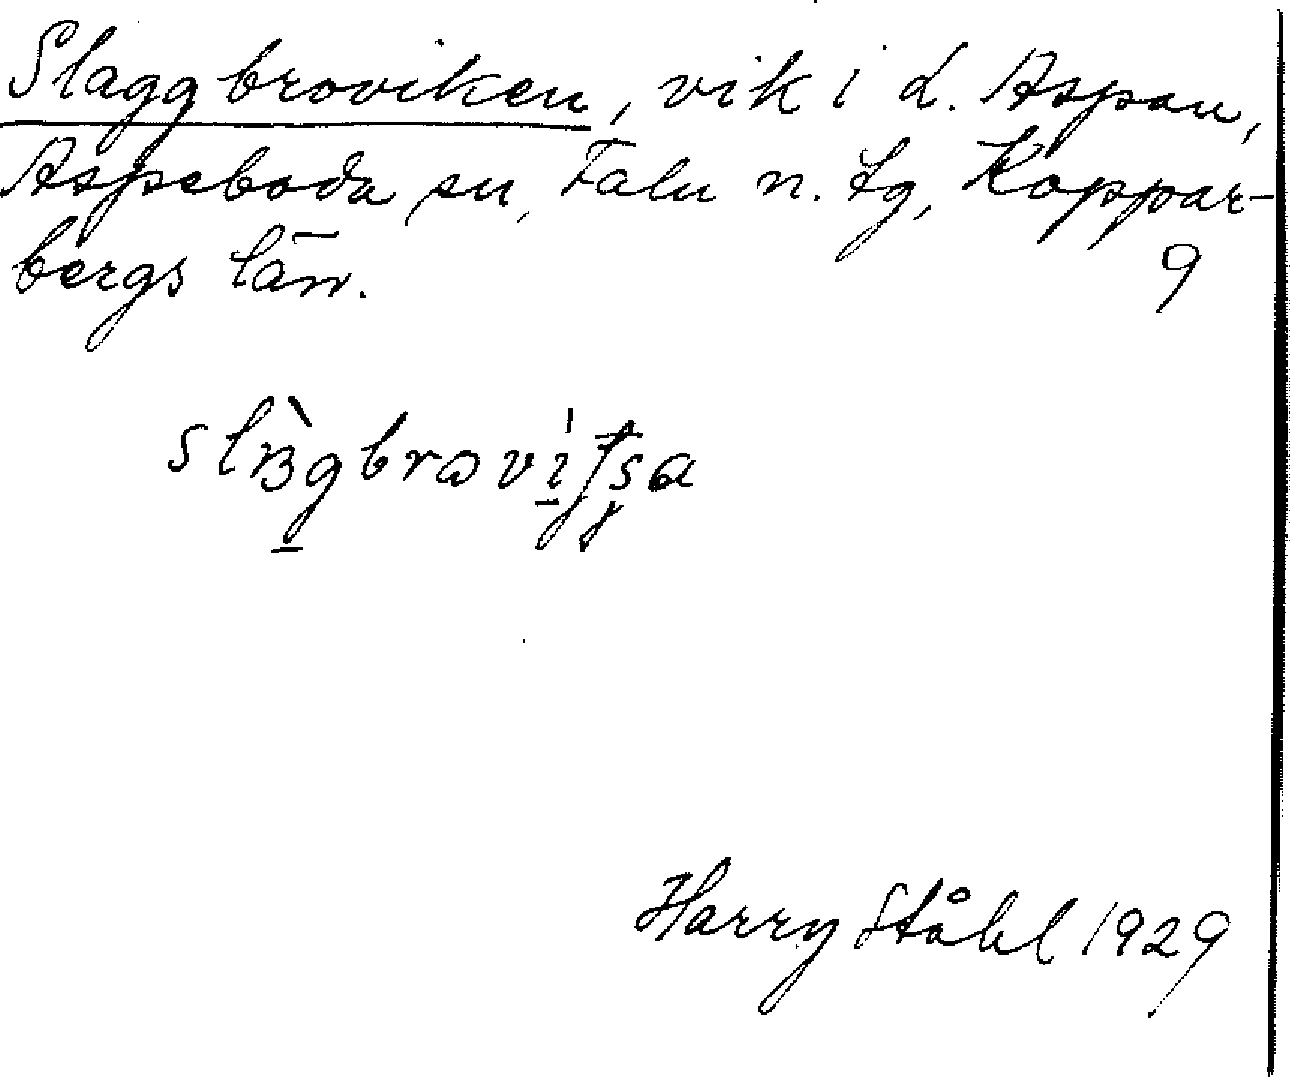 Slaggbroviken, vik i d. Aspan,
Aspeboda sn, Falu n. tg, Koppar-
bergs län.
9
Harry Ståhl 1929